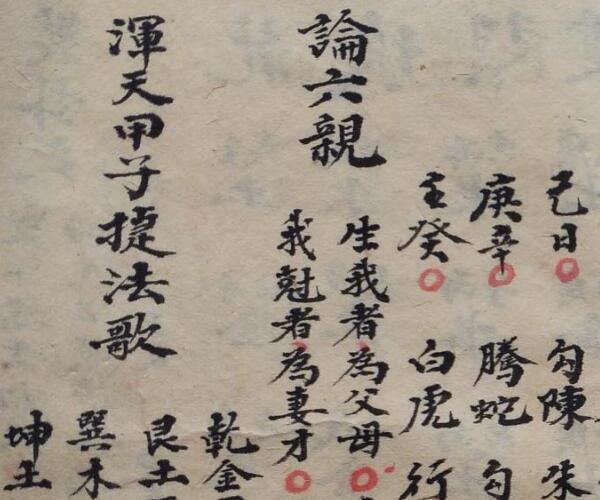 己日 勾陳 朱
庚辛 騰蛇 勾
壬癸 白虎 行
論六親
生我者為父母
我尅者為妻才
乾金
渾天甲子捷法歌
艮土
巽木
坤土